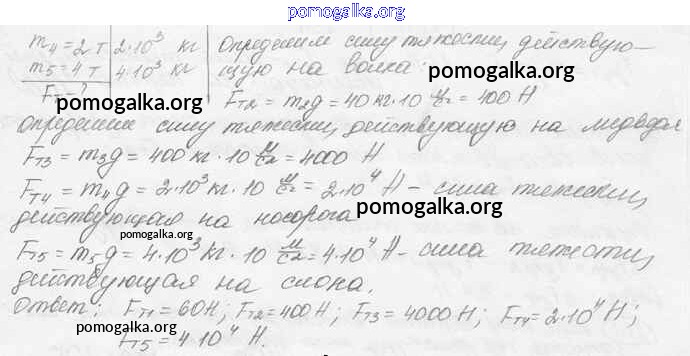 pomogalka.org
m₄ = 2 т | 2·10³ кг | Определим силу тяжести, действую-
m₅ = 4 т | 4·10³ кг | щую на волка:
pomogalka.org
Fт - ?
pomogalka.org
Fт2 = m₂g = 40 кг · 10 м/с² = 400 Н
определим силу тяжести, действующую на медведя
Fт3 = m₃g = 400 кг · 10 м/с² = 4000 Н
Fт4 = m₄g = 2·10³ кг · 10 м/с² = 2·10⁴ Н – сила тяжести,
действующая на носорога
pomogalka.org
pomogalka.org
Fт5 = m₅g = 4·10³ кг · 10 м/с² = 4·10⁴ Н – сила тяжести,
действующая на слона.
Ответ: Fт1 = 60Н; Fт2 = 400Н; Fт3 = 4000 Н; Fт4 = 2·10⁴ Н;
pomogalka.org
Fт5 = 4·10⁴ Н.